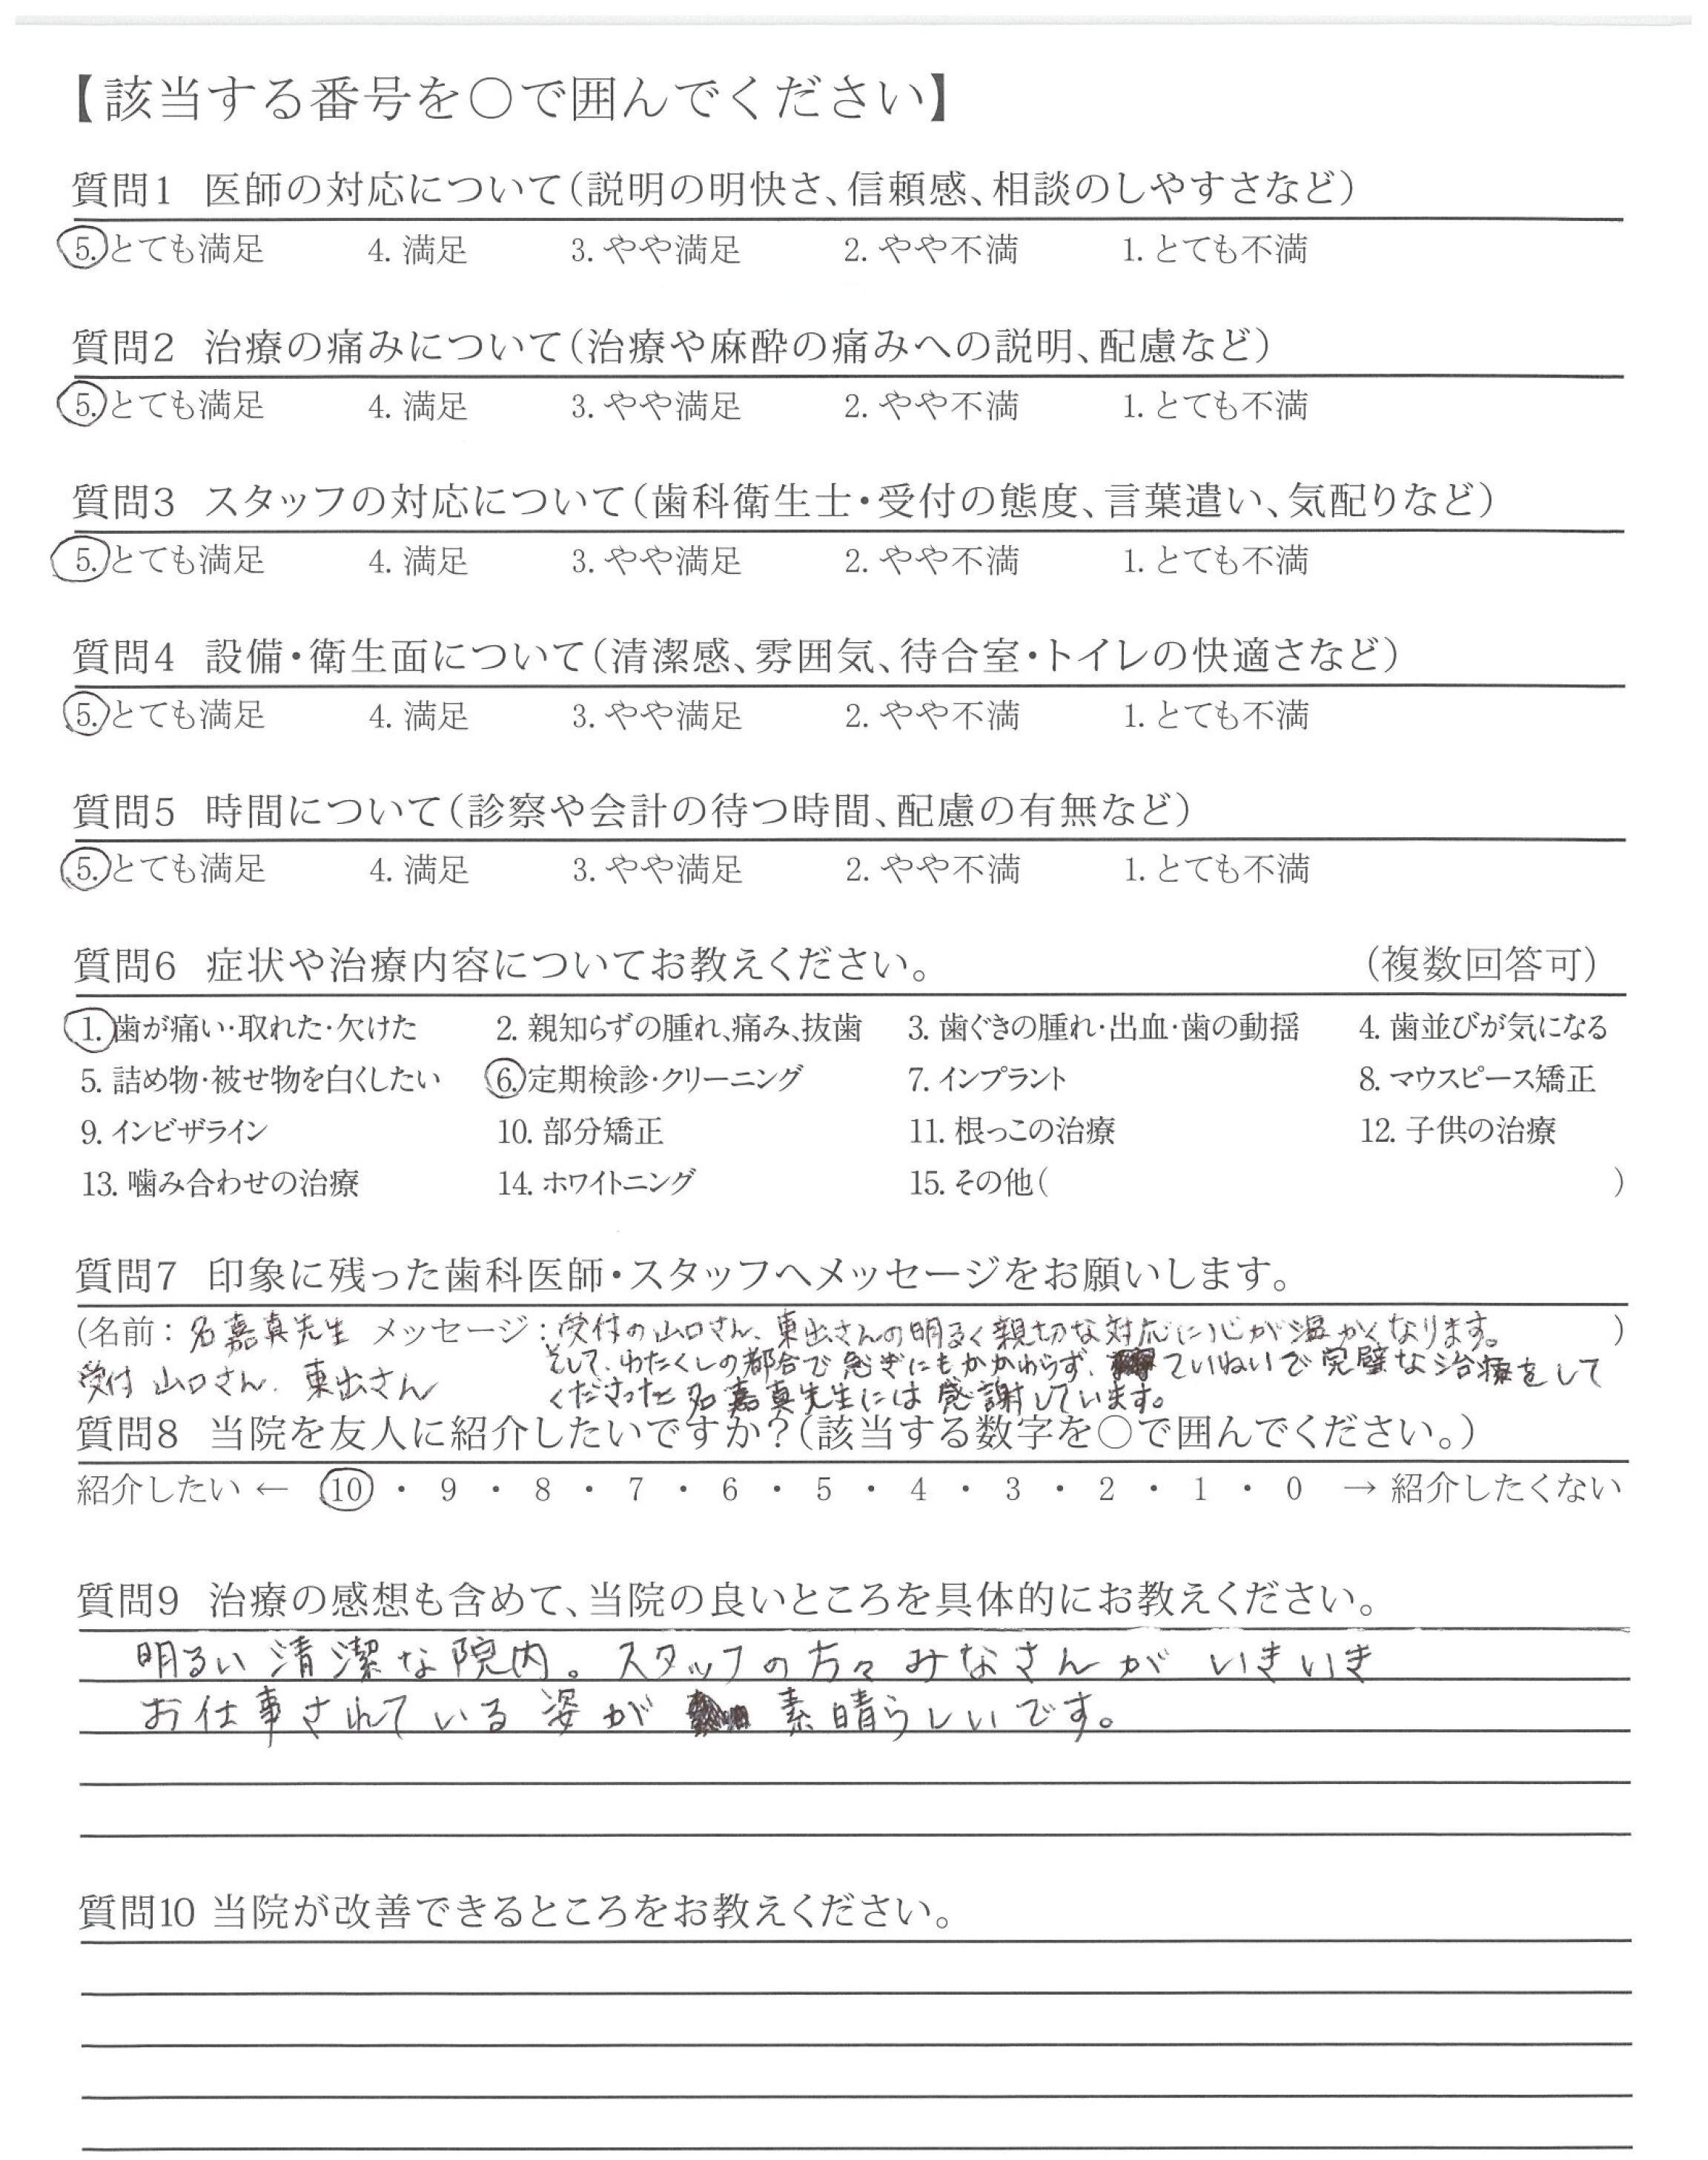 【該当する番号を○で囲んでください】
質問1 医師の対応について(説明の明快さ、信頼感、相談のしやすさなど)
5. とても満足 4. 満足 3. やや満足 2. やや不満 1. とても不満
質問2 治療の痛みについて(治療や麻酔の痛みへの説明、配慮など)
5. とても満足 4. 満足 3. やや満足 2. やや不満 1. とても不満
質問3 スタッフの対応について(歯科衛生士・受付の態度、言葉遣い、気配りなど)
5. とても満足 4. 満足 3. やや満足 2. やや不満 1. とても不満
質問4 設備・衛生面について(清潔感、雰囲気、待合室・トイレの快適さなど)
5. とても満足 4. 満足 3. やや満足 2. やや不満 1. とても不満
質問5 時間について(診察や会計の待つ時間、配慮の有無など)
5. とても満足 4. 満足 3. やや満足 2. やや不満 1. とても不満
質問6 症状や治療内容についてお教えください。 (複数回答可)
1. 歯が痛い・取れた・欠けた 2. 親知らずの腫れ、痛み、抜歯 3. 歯ぐきの腫れ・出血・歯の動揺 4. 歯並びが気になる
5. 詰め物・被せ物を白くしたい 6. 定期検診・クリーニング 7. インプラント 8. マウスピース矯正
9. インビザライン 10. 部分矯正 11. 根っこの治療 12. 子供の治療
13. 噛み合わせの治療 14. ホワイトニング 15. その他( )
質問7 印象に残った歯科医師・スタッフへメッセージをお願いします。
(名前：名嘉真先生 メッセージ：受付の山口さん、東出さんの明るく親切な対応に心が温かくなります。 )
そして、わたくしの都合で急ぎにもかかわらず、ていねいで完璧な治療をして
受付 山口さん、東出さん
くださった名嘉真先生には感謝しています。
質問8 当院を友人に紹介したいですか?(該当する数字を○で囲んでください。)
紹介したい ← 10 ・ 9 ・ 8 ・ 7 ・ 6 ・ 5 ・ 4 ・ 3 ・ 2 ・ 1 ・ 0 → 紹介したくない
質問9 治療の感想も含めて、当院の良いところを具体的にお教えください。
明るい清潔な院内。スタッフの方々みなさんがいきいき
お仕事されている姿が素晴らしいです。
質問10 当院が改善できるところをお教えください。